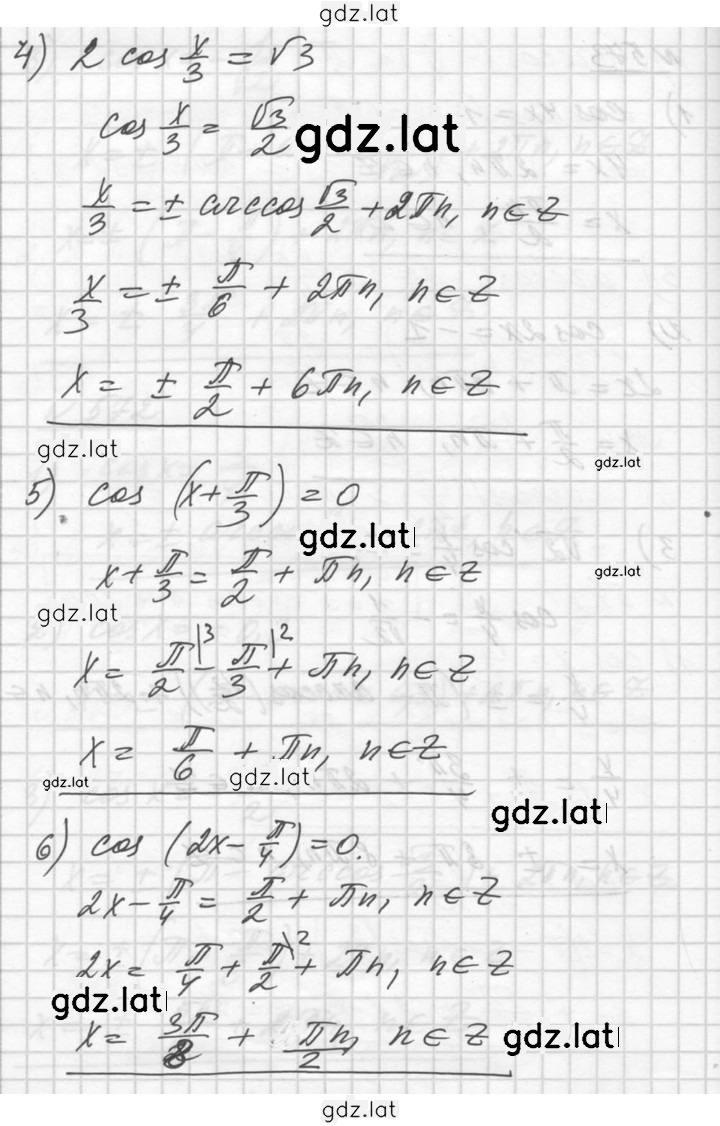 gdz.lat
4) 2 cos x/3 = √3
cos x/3 = √3/2
gdz.lat
x/3 = ± arccos √3/2 + 2πn, n ∈ Z
x/3 = ± π/6 + 2πn, n ∈ Z
x = ± π/2 + 6πn, n ∈ Z
gdz.lat
gdz.lat
5) cos (x + π/3) = 0
gdz.lat
x + π/3 = π/2 + πn, n ∈ Z
gdz.lat
gdz.lat
x = π/2\3 − π/3\2 + πn, n ∈ Z
x = π/6 + πn, n ∈ Z
gdz.lat
gdz.lat
gdz.lat
6) cos (2x − π/4) = 0.
2x − π/4 = π/2 + πn, n ∈ Z
2x = π/4 + π/2\2 + πn, n ∈ Z
gdz.lat
x = 3π/8 + πn/2, n ∈ Z
gdz.lat
gdz.lat